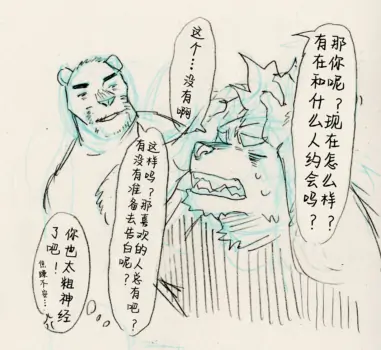 那你呢?现在怎么样?
有在和什么人约会吗?
这个…
没有啊
这样吗?那喜欢的人总有吧?
有没有准备去告白呢?
你也太粗神经
了吧!